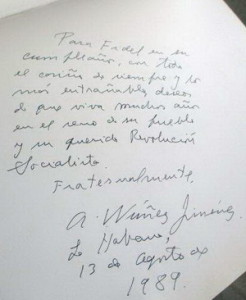 Para Fidel en su
cumpleaños, con todo
el cariño de siempre y los
más entrañables deseos
de que viva muchos años
en el seno de su pueblo
y su querida Revolución
Socialista.
Fraternalmente,
A. Núñez Jiménez.
La Habana,
13 de Agosto de
1989.